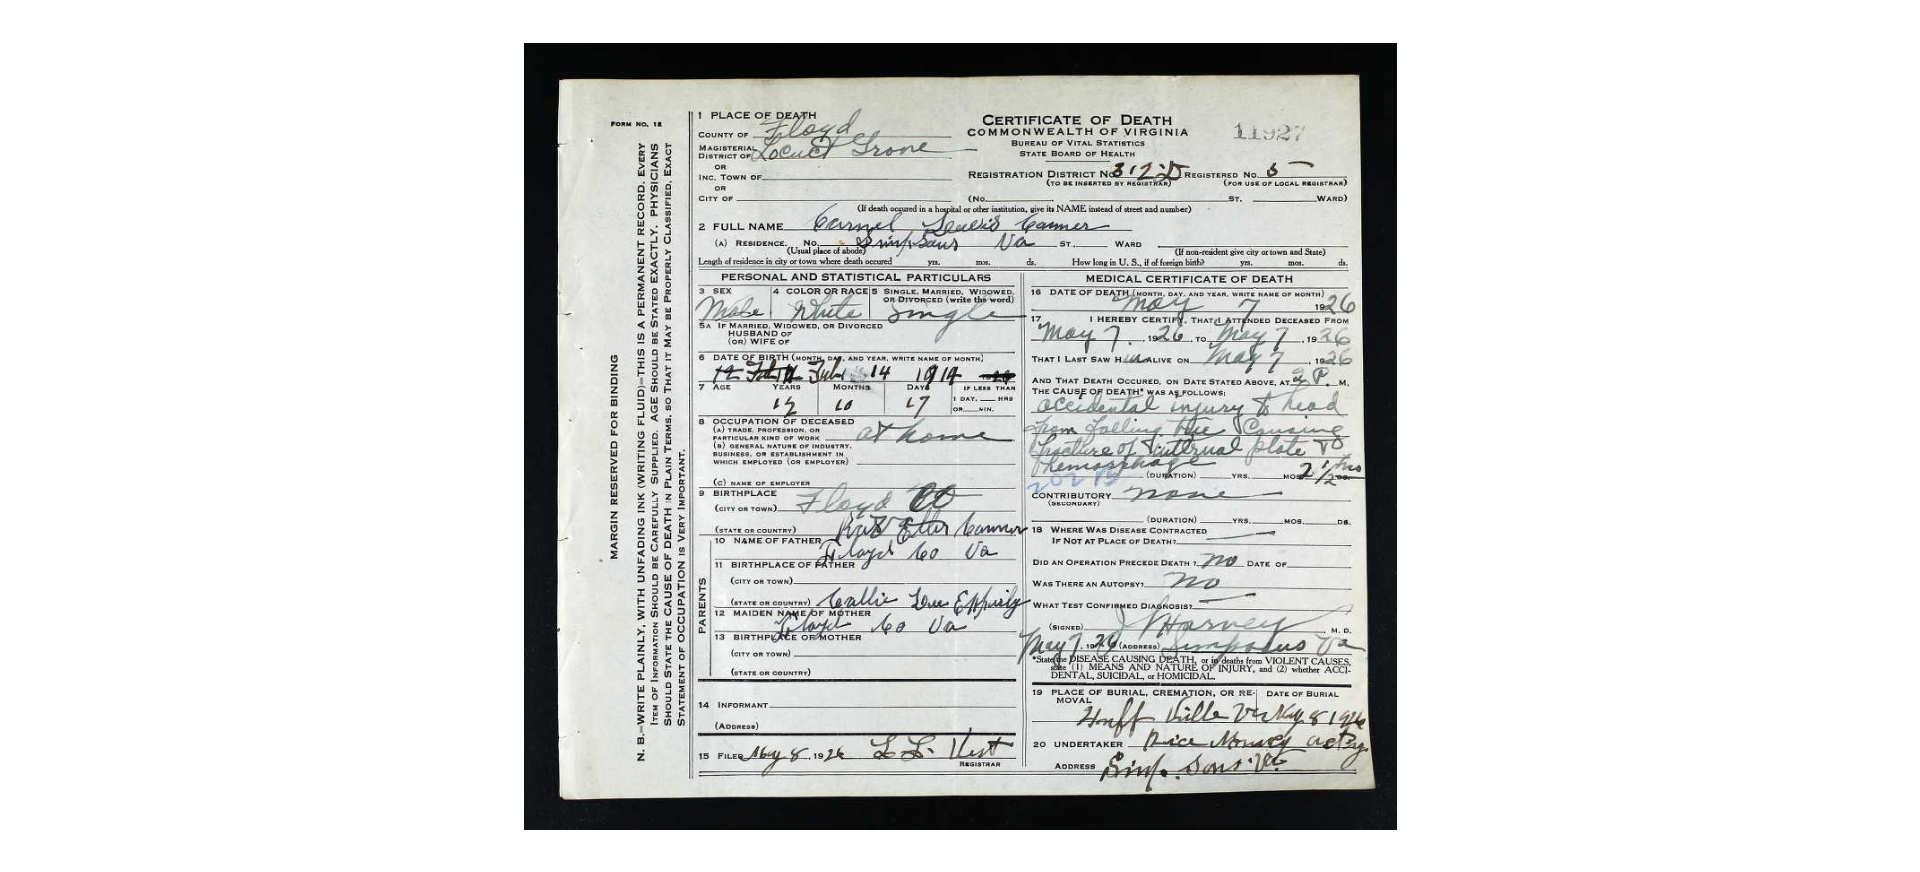 FORM NO. 12
MARGIN RESERVED FOR BINDING
N. B.—WRITE PLAINLY, WITH UNFADING INK (WRITING FLUID)—THIS IS A PERMANENT RECORD. EVERY
ITEM OF INFORMATION SHOULD BE CAREFULLY SUPPLIED. AGE SHOULD BE STATED EXACTLY. PHYSICIANS
SHOULD STATE THE CAUSE OF DEATH IN PLAIN TERMS, SO THAT IT MAY BE PROPERLY CLASSIFIED. EXACT
STATEMENT OF OCCUPATION IS VERY IMPORTANT.
1 PLACE OF DEATH
COUNTY OF Floyd
MAGISTERIAL DISTRICT OF Locust Grove
OR
INC. TOWN OF
OR
CITY OF
CERTIFICATE OF DEATH
COMMONWEALTH OF VIRGINIA
BUREAU OF VITAL STATISTICS
STATE BOARD OF HEALTH
11927
REGISTRATION DISTRICT No 312D REGISTERED No. 5
(TO BE INSERTED BY REGISTRAR) (FOR USE OF LOCAL REGISTRAR)
(No. ST. WARD)
(If death occured in a hospital or other institution, give its NAME instead of street and number)
2 FULL NAME Carmel Lewis Conner
(A) RESIDENCE. No. Simpsons Va ST. WARD
(Usual place of abode) (If non-resident give city or town and State)
Length of residence in city or town where death occured yrs. mos. ds. How long in U. S., if of foreign birth? yrs. mos. ds.
PERSONAL AND STATISTICAL PARTICULARS
3 SEX 4 COLOR OR RACE 5 SINGLE, MARRIED, WIDOWED, OR DIVORCED (write the word)
Male White Single
5A IF MARRIED, WIDOWED, OR DIVORCED
HUSBAND OF
(OR) WIFE OF
6 DATE OF BIRTH (MONTH, DAY, AND YEAR, WRITE NAME OF MONTH)
14 1914
7 AGE YEARS MONTHS DAYS IF LESS THAN
1 DAY, HRS
OR MIN.
12 10 17
8 OCCUPATION OF DECEASED
(A) TRADE, PROFESSION, OR
PARTICULAR KIND OF WORK at home
(B) GENERAL NATURE OF INDUSTRY,
BUSINESS, OR ESTABLISHMENT IN
WHICH EMPLOYED (OR EMPLOYER)
(C) NAME OF EMPLOYER
9 BIRTHPLACE
(CITY OR TOWN) Floyd Co
(STATE OR COUNTRY)
PARENTS
10 NAME OF FATHER Conner
Floyd Co Va
11 BIRTHPLACE OF FATHER
(CITY OR TOWN)
(STATE OR COUNTRY)
12 MAIDEN NAME OF MOTHER Callie Epperly
Floyd Co Va
13 BIRTHPLACE OF MOTHER
(CITY OR TOWN)
(STATE OR COUNTRY)
14 INFORMANT
(ADDRESS)
15 FILED May 8, 1926 L L
REGISTRAR
MEDICAL CERTIFICATE OF DEATH
16 DATE OF DEATH (MONTH, DAY, AND YEAR, WRITE NAME OF MONTH)
May 7 1926
17 I HEREBY CERTIFY, THAT I ATTENDED DECEASED FROM
May 7. 1926, TO May 7, 1926
THAT I LAST SAW HIM ALIVE ON May 7, 1926
AND THAT DEATH OCCURED, ON DATE STATED ABOVE, AT 2 P. M.
THE CAUSE OF DEATH* WAS AS FOLLOWS:
Accidental injury to head
from falling tree Causing
fracture of internal plate &
hemorrhage
202 B
(DURATION) YRS. MOS. 2 1/2 hrs
CONTRIBUTORY none
(SECONDARY)
(DURATION) YRS. MOS. DS.
18 WHERE WAS DISEASE CONTRACTED
IF NOT AT PLACE OF DEATH?
DID AN OPERATION PRECEDE DEATH? no DATE OF
WAS THERE AN AUTOPSY? no
WHAT TEST CONFIRMED DIAGNOSIS?
(SIGNED) Harvey M. D.
May 7, 1926 (ADDRESS) Simpsons Va
*State the DISEASE CAUSING DEATH, or in deaths from VIOLENT CAUSES,
state (1) MEANS AND NATURE OF INJURY, and (2) whether ACCI-
DENTAL, SUICIDAL, or HOMICIDAL.
19 PLACE OF BURIAL, CREMATION, OR RE- DATE OF BURIAL
MOVAL
Huff Ville Va May 8 1926
20 UNDERTAKER Rice
ADDRESS Simpsons Va